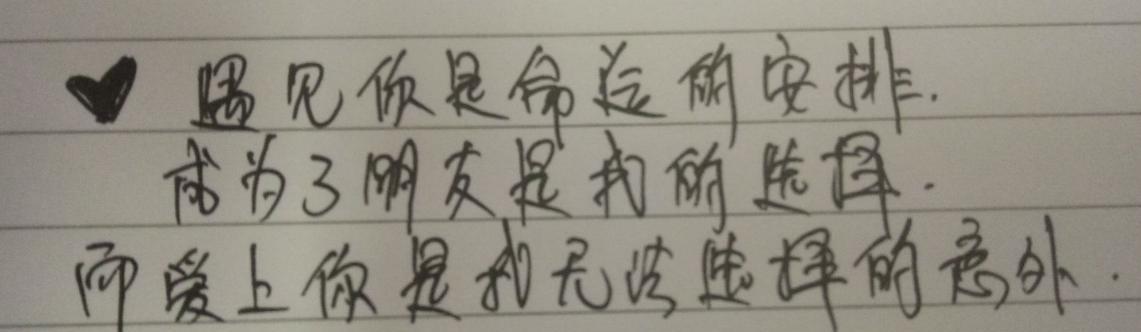 ♥ 遇见你是命运的安排.
成为了朋友是我的选择.
而爱上你是我无法选择的意外.